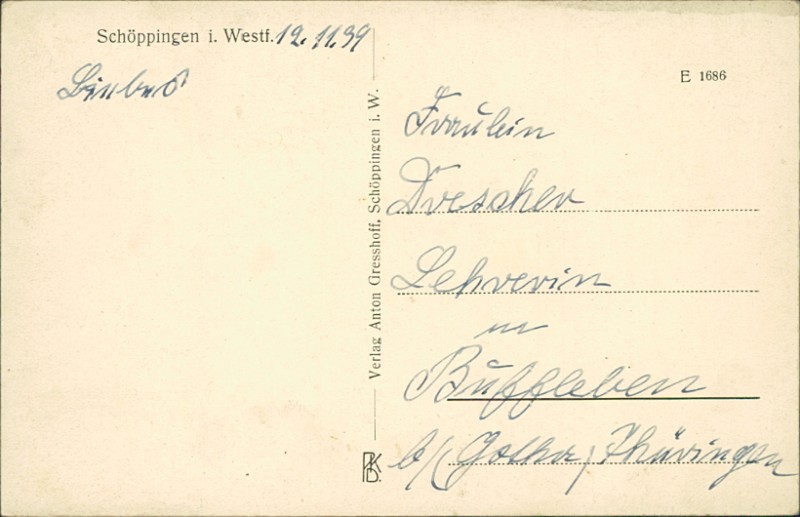 Schöppingen i. Westf. 12.11.39
Liebes
Verlag Anton Gresshoff, Schöppingen i. W.
E 1686
Fräulein
Drescher
Lehrerin
in
Bufleben
b/ Gotha, Thüringen